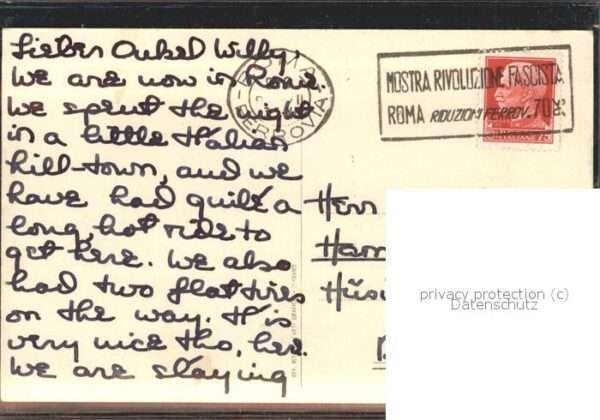 Lieber Onkel Willy,
We are now in Rome.
We spent the night
in a little Italian
hill-town, and we
have had quite a
long, hot ride to
get here. We also
had two flat tires
on the way. It is
very nice tho, here.
We are staying
ROMA
FERROVIA
MOSTRA RIVOLUZIONE FASCISTA
ROMA RIDUZIONI FERROV. 70%
Herr
privacy protection (c)
Datenschutz